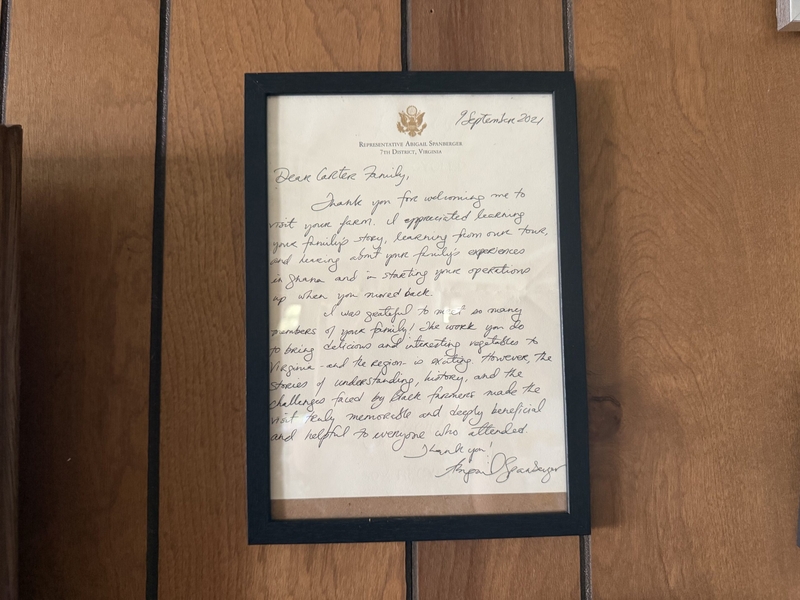 9 September 2021
REPRESENTATIVE ABIGAIL SPANBERGER
7TH DISTRICT, VIRGINIA
Dear Carter Family,
Thank you for welcoming me to
visit your farm. I appreciated learning
your family's story, learning from our tour,
and hearing about your family's experiences
in Ghana and in starting your operations
up when you moved back.
I was grateful to meet so many
members of your family! The work you do
to bring delicious and interesting vegetables to
Virginia - and the region - is exciting. However, the
stories of understanding, history, and the
challenges faced by Black farmers made the
visit truly memorable and deeply beneficial
and helpful to everyone who attended.
Thank you!
Abigail Spanberger